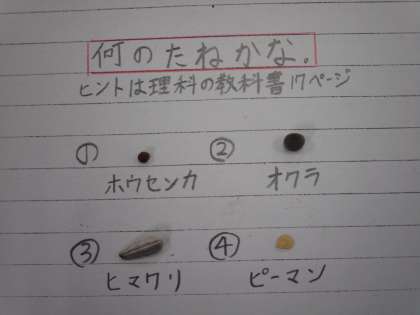 何のたねかな。
ヒントは理科の教科書17ページ
① ②
ホウセンカ オクラ
③ ④
ヒマワリ ピーマン